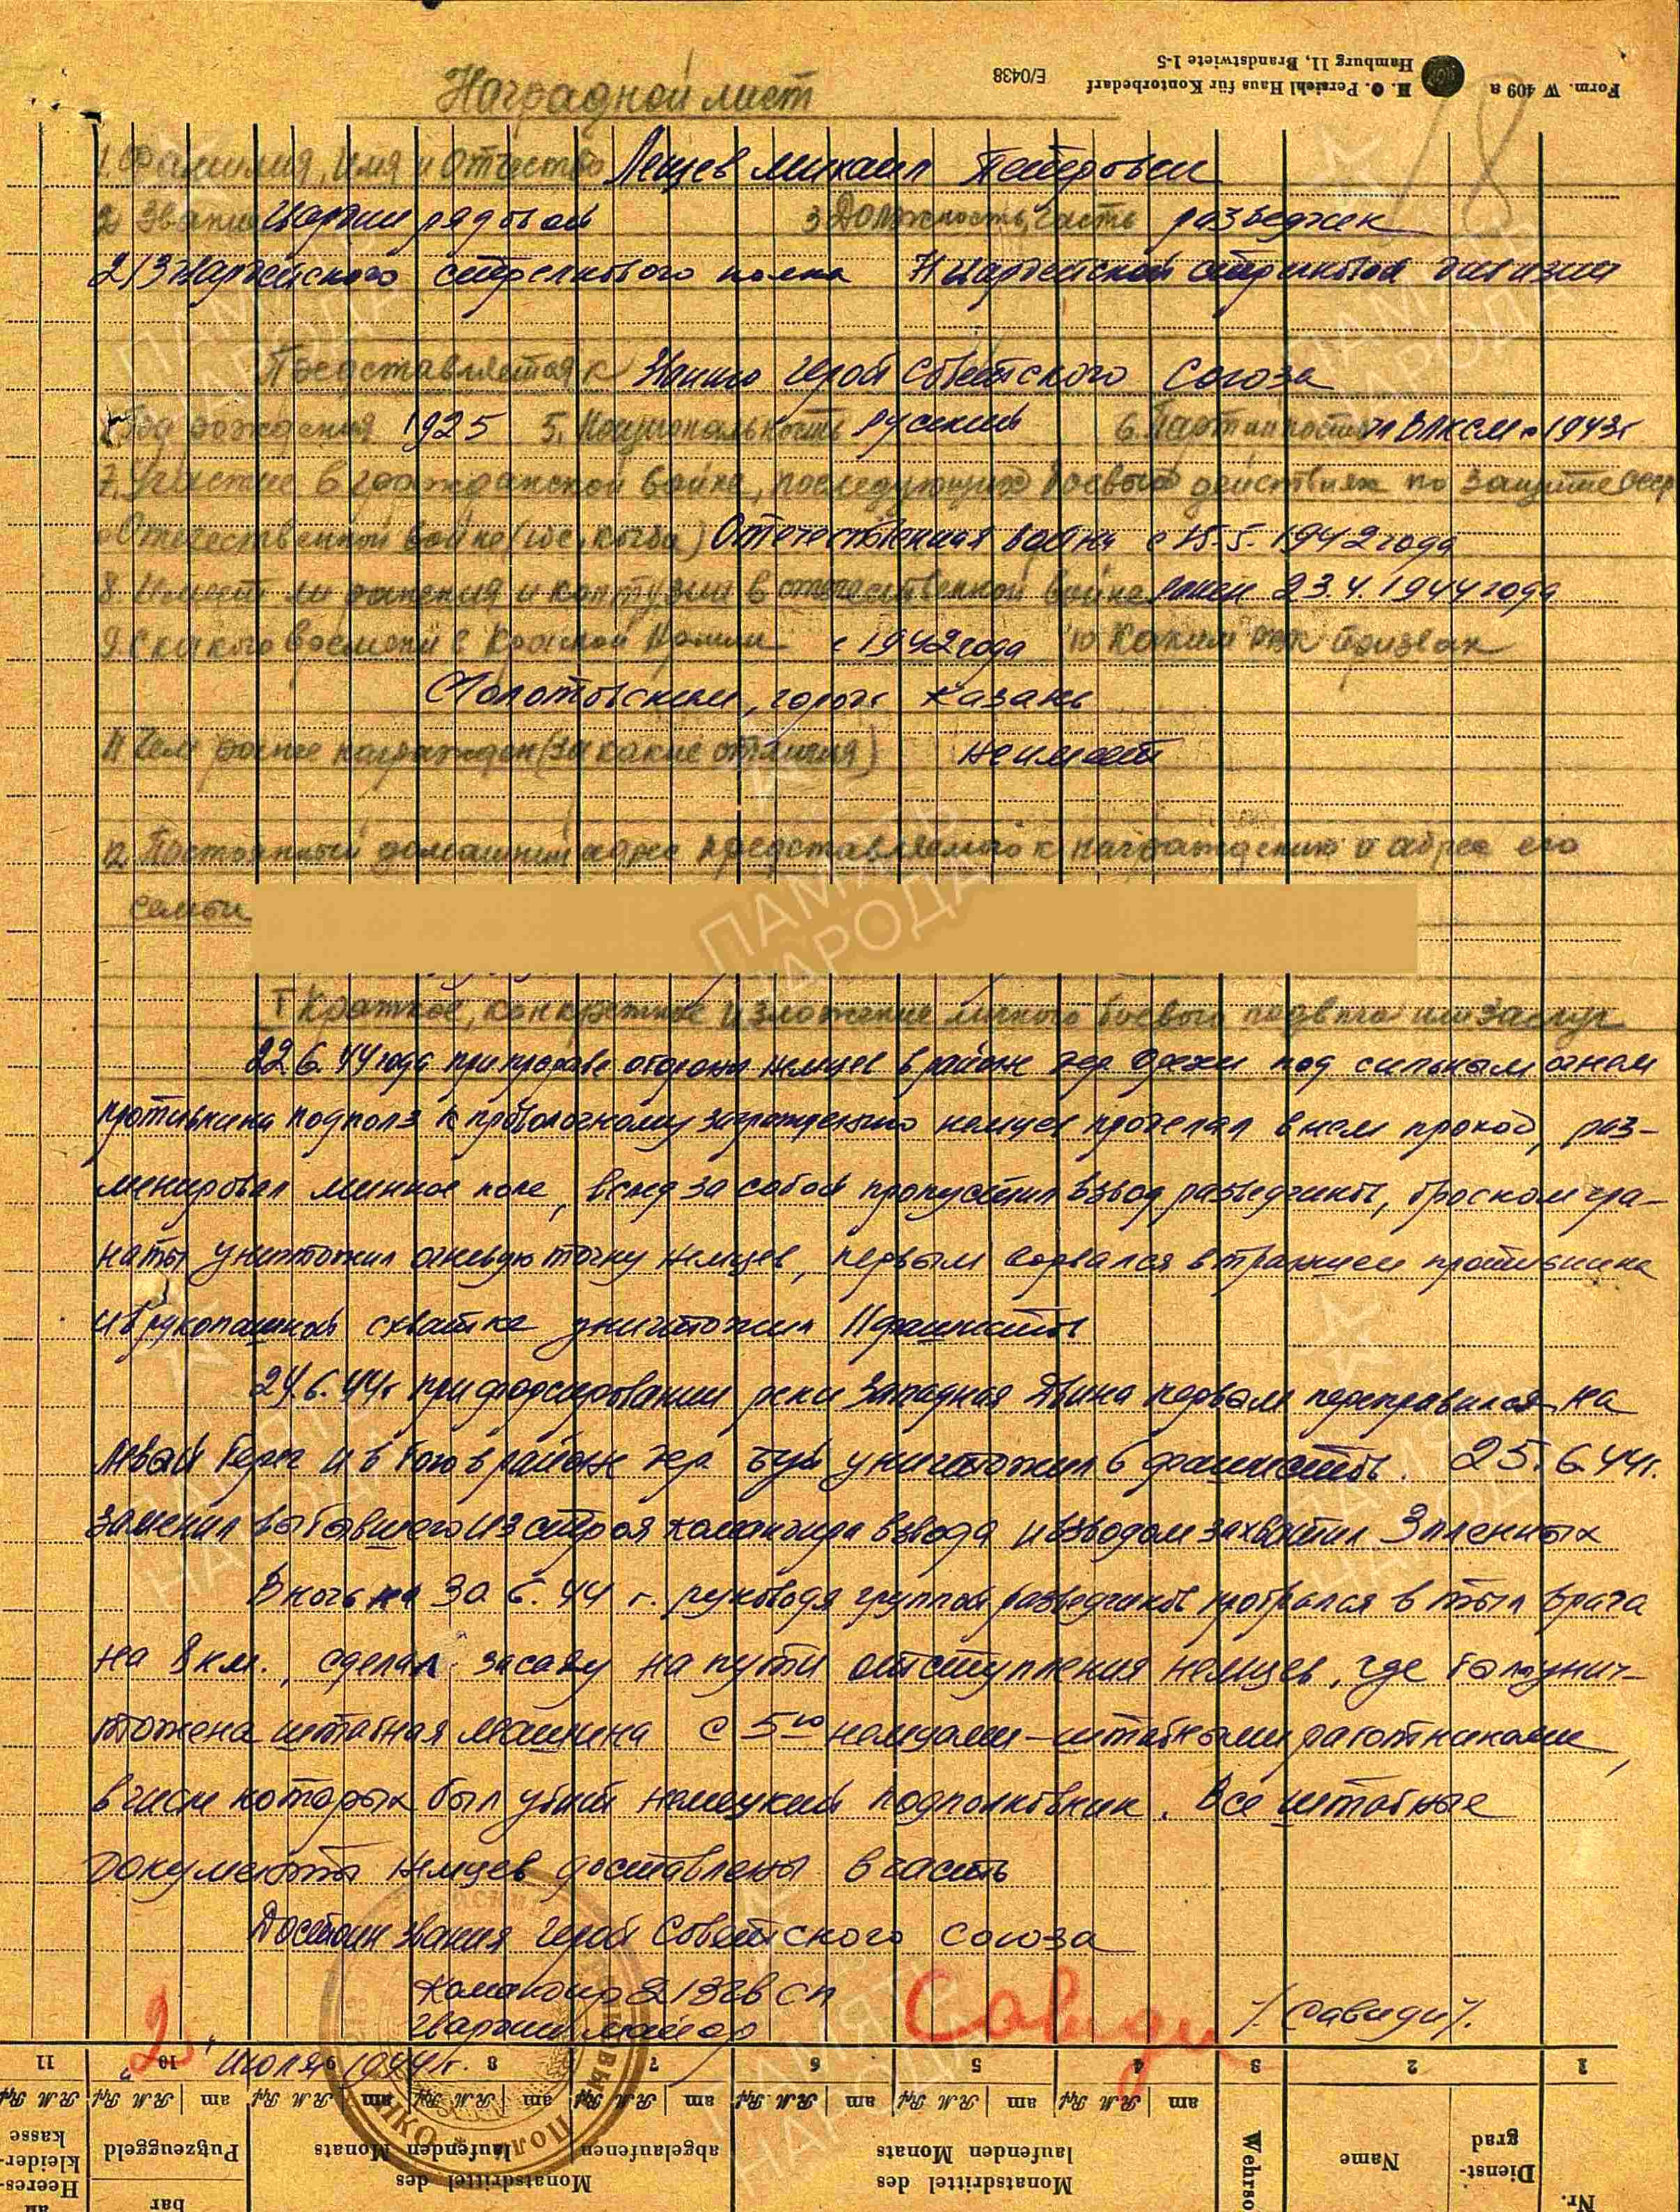 Form. W 409 a
H. O. Persiehl Haus für Kontorbedarf
Hamburg 11, Brandstwiete 1-5
E/0438
Наградной лист
1. Фамилия, Имя и Отчество Лещев Михаил Петрович
2) Звание гвардии рядовой 3. Должность, часть разведчик
213 гвардейского стрелкового полка 71 гвардейской стрелковой дивизии
Представляется к Званию Герой Советского Союза
Год рождения 1925 5. Национальность русский 6. Партийность чл ВЛКСМ с 1943 г
7. Участие в гражданской войне, последующих боевых действиях по защите СССР
Отечественной войне (где, когда) Отечественная война с 15.5.1942 года
8. Имеет ли ранения и контузии в отечественной войне ранен 23.4.1944 года
9. С какого времени в Красной Армии с 1942 года 10 Каким РВК призван
Молотовским, город Казань
11 Чем ранее награжден (за какие отличия) не имеет
12. Постоянный домашний адрес представляемого к награждению и адрес его
семьи
I Краткое, конкретное изложение личного боевого подвига или заслуг
22.6.44 года при прорыве обороны немцев в районе дер под сильным огнем
противника подполз к проволочному заграждению немцев проделал в нем проход, раз-
минировал минное поле, вслед за собой пропустил взвод разведчиков, броском гра-
наты уничтожил огневую точку немцев, первым ворвался в траншеи противника
и в рукопашной схватке уничтожил 11 фашистов
24.6.44 г при форсировании реки Западная Двина первым переправился на
левый берег и в бою в районе дер Буй уничтожил 6 фашистов. 25.6.44 г.
заменил выбывшего из строя командира взвода и взводом захватил 3 пленных
В ночь на 30.6.44 г. руководя группой разведчиков пробрался в тыл врага
на 8 км., сделал засаду на пути отступления немцев, где была унич-
тожена штабная машина с 5ю немцами-штабными работниками,
в числе которых был убит немецкий подполковник. Все штабные
документы немцев доставлены в часть
Достоин звания Герой Советского Союза
Командир 213 гв сп
гвардии майор Савиди /Савиди/.
"2" июля 1944 г.
11 10 9 8 7 6 5 4 3 2 1
Nr.
Dienst-
grad
Name
Wehrso
Monatsdrittel des
laufenden Monats
Monatsdrittel des
abgelaufenen
laufenden Monats
bar
Putzzeuggeld
an
Heeres-
kleider-
kasse
am
R.M. Rpf
ПАМЯТЬ
НАРОДА